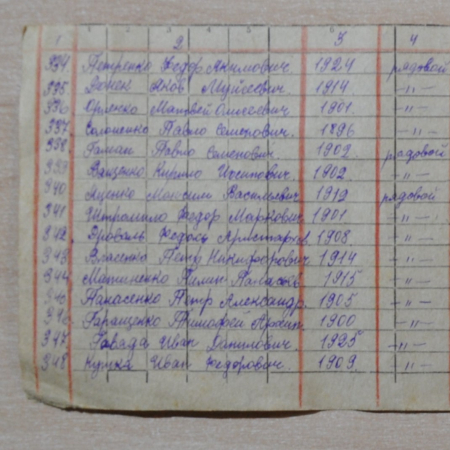 1 2 3 4
334. Петренко Федор Акимович 1924 рядовой
335. Донец Яков Мусиевич 1914 -"-
336. Орленко Матвей Олисеевич 1901. -"-
337. Солошенко Павло Семенович. 1896 -"-
338. Галган Павло Семенович. 1902 рядовой
339. Ващенко Кирило 1902 -"-
340. Яценко Максим Васильевич 1912 рядовой
341. Федор Маркович 1901 -"-
342. Дроваль Федось Аристархов. 1908. -"-
343. Власенко Петр Никифорович 1914 -"-
344. Мартиненко Пилип Панасов. 1915 -"-
345. Панасенко Петр Александр. 1905 -"-
346. Гаращенко Тимофей Архип. 1900 -"-
347. Гавада Иван Данилович. 1925 -"-
348. Куцка Иван Федорович. 1909. -"-